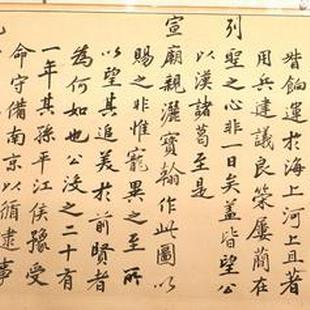 皆餉運於海上河上且著
用兵建議良策屢蕳在
列聖之心非一日矣蓋皆望公
以漢諸葛至是
宣廟親灑寶翰作此圖以
賜之非惟寵異之至所
以望其追美於前賢者
為何如也公沒之二十有
一年其孫平江侯豫受
命守備南京以循逮事